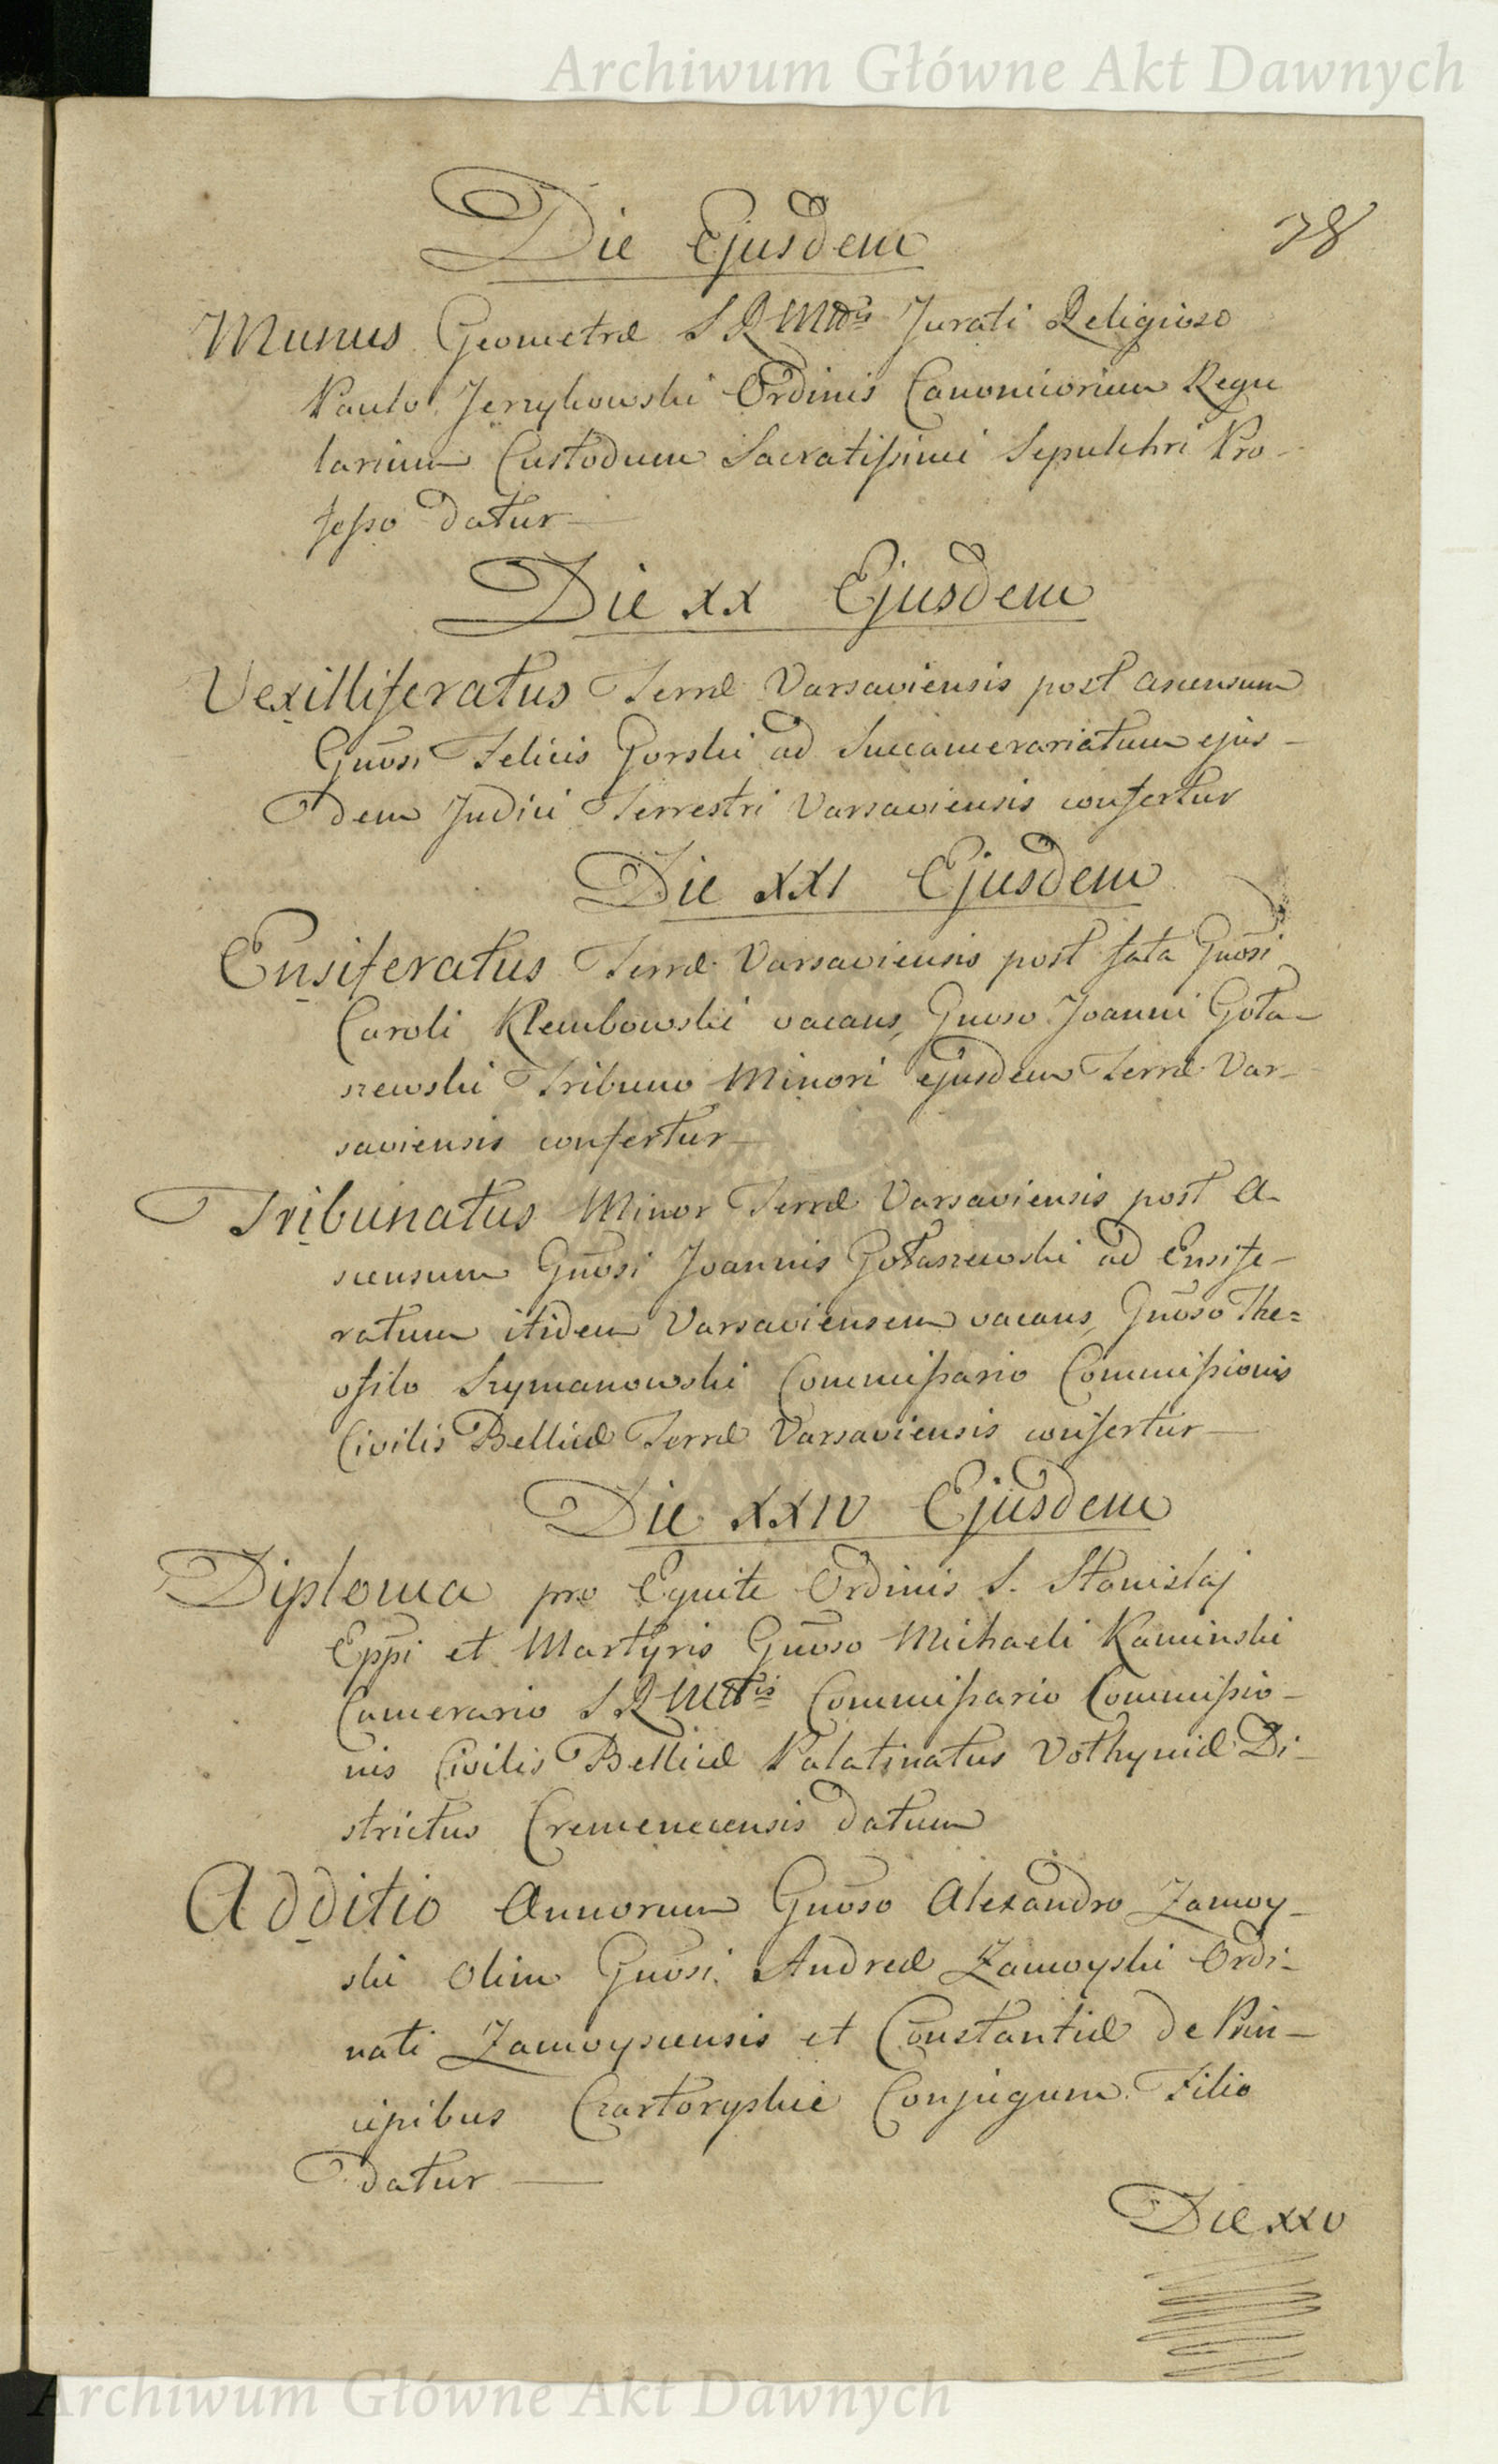 Archiwum Główne Akt Dawnych
Die Ejusdem
38
Munus Geometræ S R Mttis Jurati Religioso
Paulo Jerzykowski Ordinis Canonicorum Regu
larium Custodum Sacratissimi Sepulchri Pro-
fesso datur
Die XX Ejusdem
Vexilliferatus Terræ Varsaviensis post ascensum
Gnosi Felicis Gorski ad Succamerariatum ejus-
dem Judici Terrestri Varsaviensis confertur
Die XXI Ejusdem
Ensiferatus Terræ Varsaviensis post fata Gnosi
Caroli Klembowski vacans, Gnoso Joanni Goła-
szewski Tribuno Minori ejusdem Terræ Var-
saviensis confertur
Tribunatus Minor Terræ Varsaviensis post a-
scensum Gnosi Joannis Gołaszewski ad Ensife-
ratum itidem Varsaviensem vacans, Gnoso The=
ofilo Szymanowski Commissario Commissionis
Civilis Bellicæ Terræ Varsaviensis confertur
Die XXIV Ejusdem
Diploma pro Equite Ordinis S. Stanislaj
Eppi et Martyris Gnoso Michaeli Kaminski
Camerario S R Mttis Commissario Commissio-
nis Civilis Bellicæ Palatinatus Volhyniæ Di-
strictus Cremenecensis datum
Additio Annorum Gnoso Alexandro Zamoy-
ski olim Gnosi Andreæ Zamoyski Ordi-
nati Zamoyscensis et Constantiæ de Prin-
cipibus Czartoryskie Conjugum Filio
datur
Die XXV
Archiwum Główne Akt Dawnych